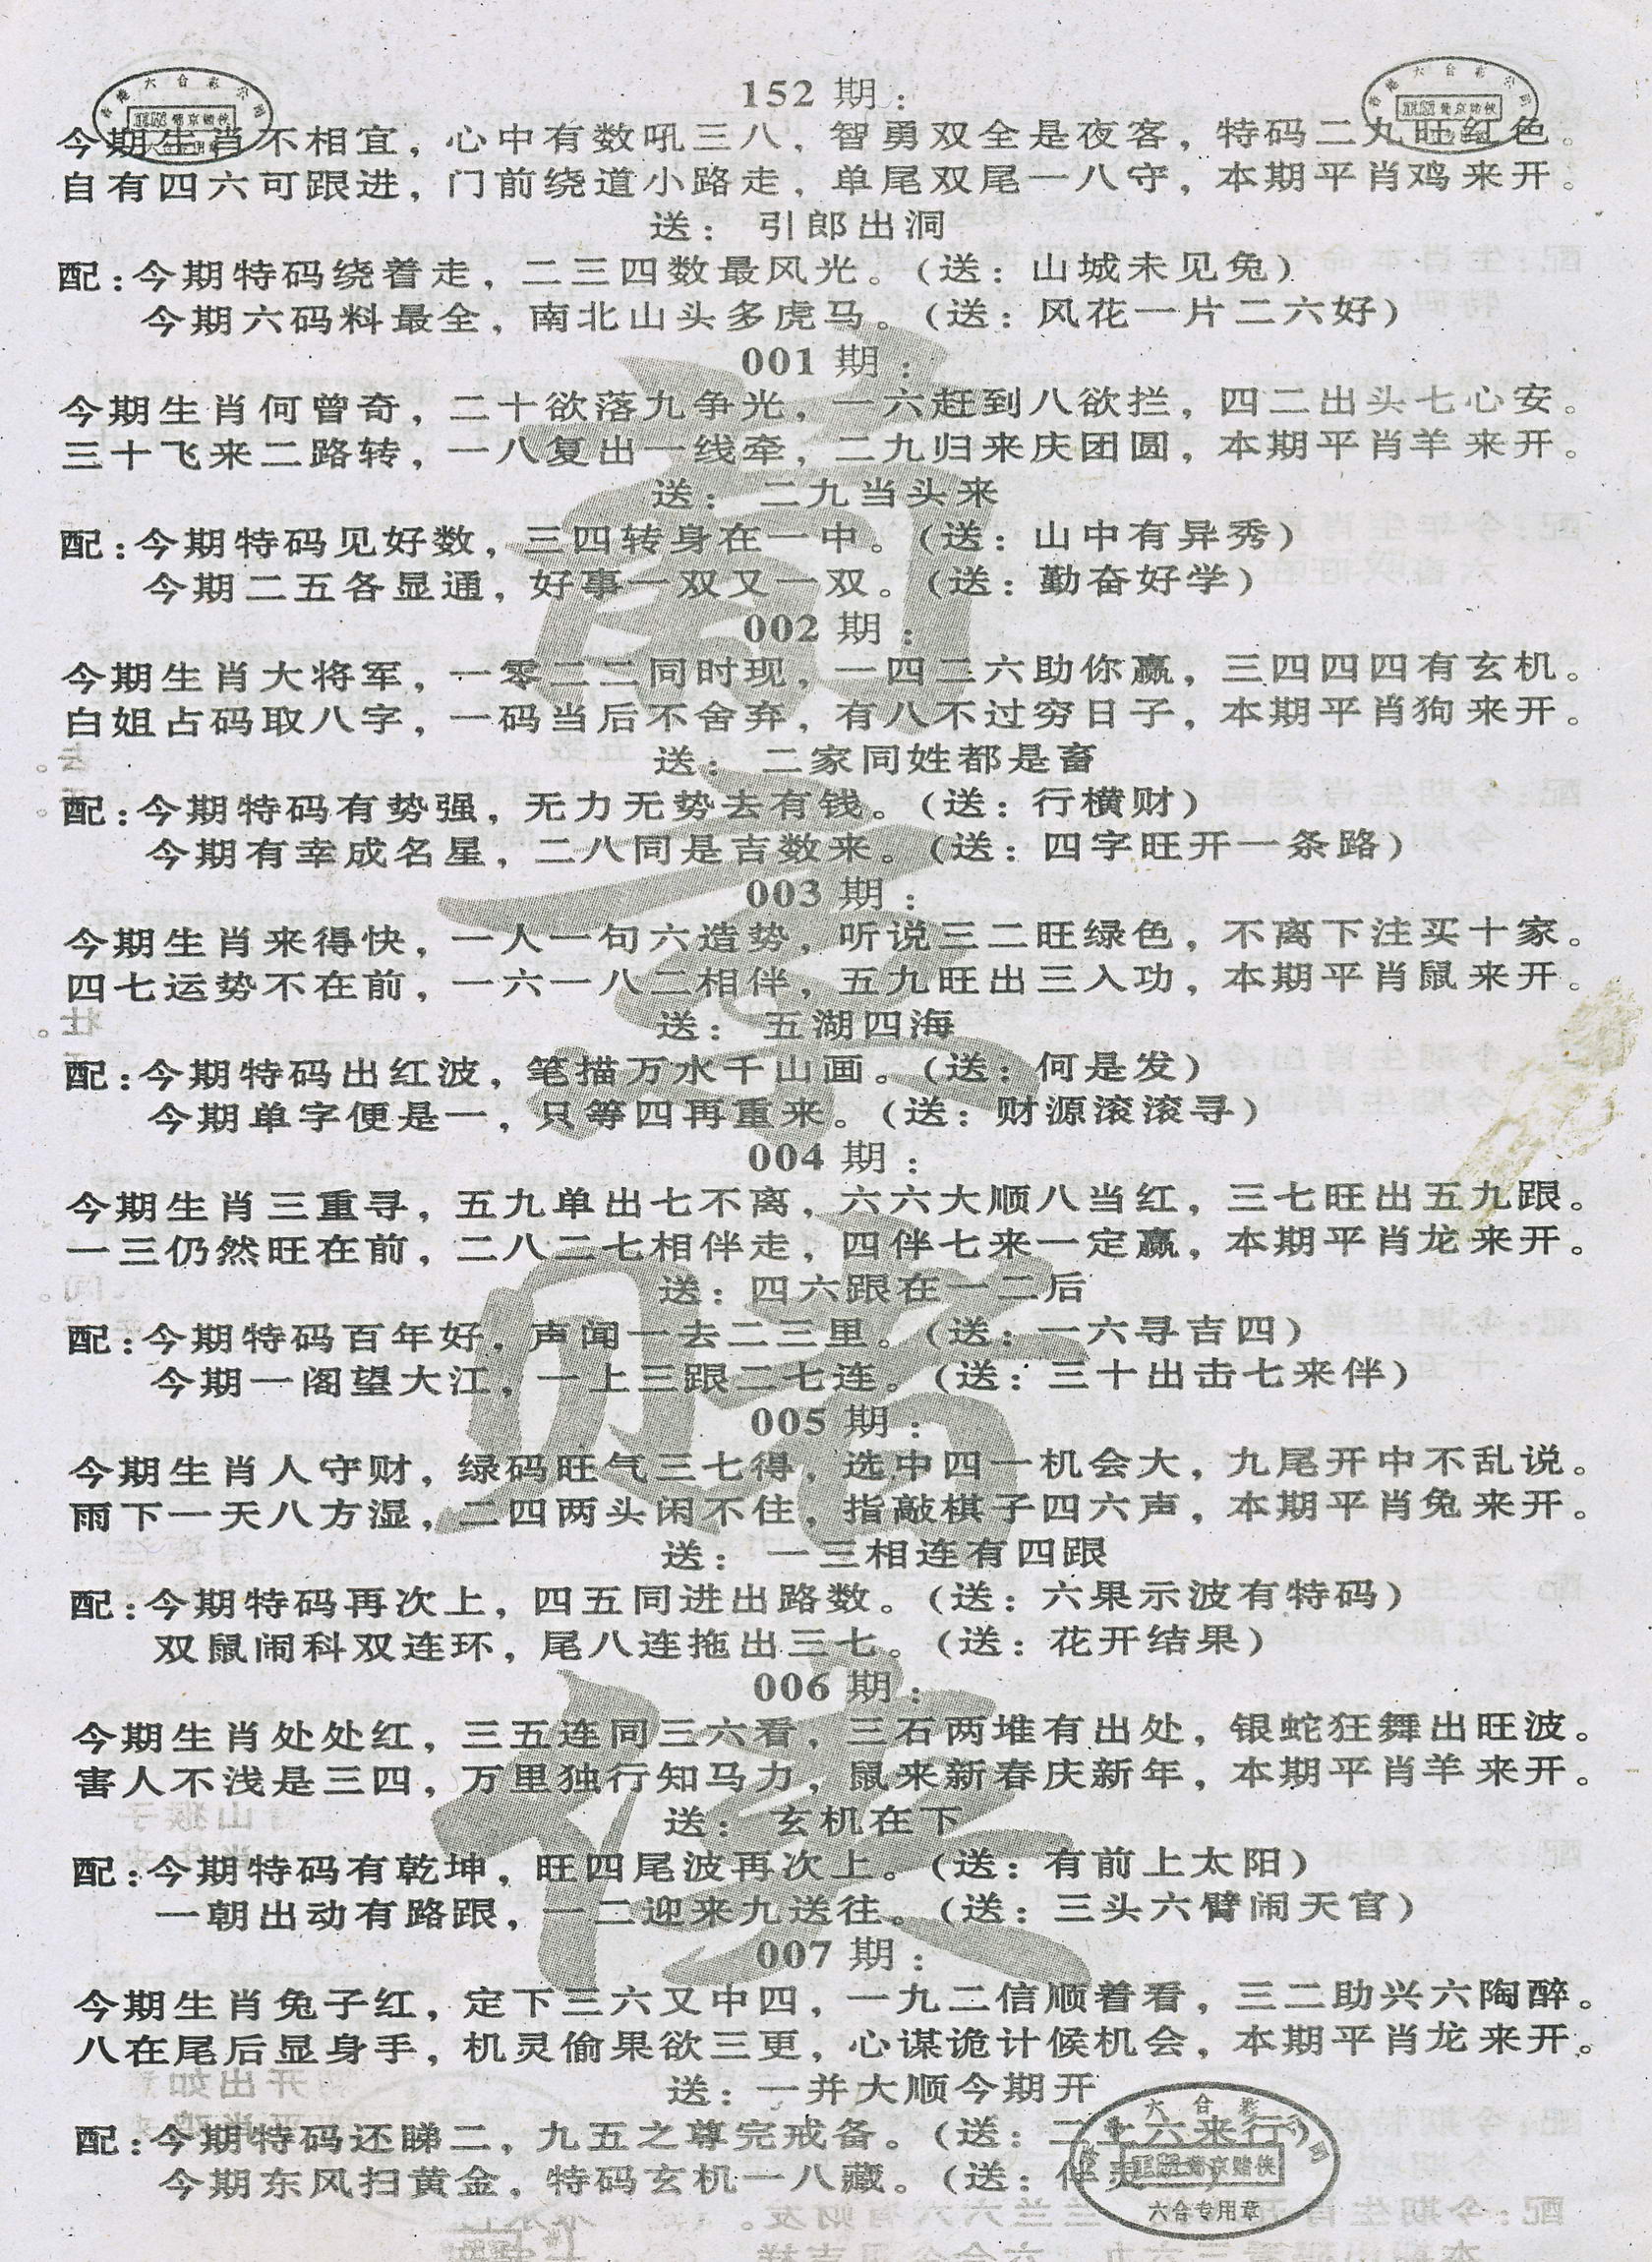 152期：
今期生肖不相宜，心中有数吼三八，智勇双全是夜客，特码二九旺红色。
自有四六可跟进，门前绕道小路走，单尾双尾一八守，本期平肖鸡来开。
送：引郎出洞
配：今期特码绕着走，二三四数最风光。（送：山城未见兔）
今期六码料最全，南北山头多虎马。（送：风花一片二六好）
001期：
今期生肖何曾奇，二十欲落九争光，一六赶到八欲拦，四二出头七心安。
三十飞来二路转，一八复出一线牵，二九归来庆团圆，本期平肖羊来开。
送：二九当头来
配：今期特码见好数，三四转身在一中。（送：山中有异秀）
今期二五各显通，好事一双又一双。（送：勤奋好学）
002期：
今期生肖大将军，一零二二同时现，一四二六助你赢，三四四四有玄机。
白姐占码取八字，一码当后不舍弃，有八不过穷日子，本期平肖狗来开。
送：二家同姓都是畜
配：今期特码有势强，无力无势去有钱。（送：行横财）
今期有幸成名星，二八同是吉数来。（送：四字旺开一条路）
003期：
今期生肖来得快，一人一句六造势，听说三二旺绿色，不离下注买十家。
四七运势不在前，一六一八二相伴，五九旺出三入功，本期平肖鼠来开。
送：五湖四海
配：今期特码出红波，笔描万水千山画。（送：何是发）
今期单字便是一，只等四再重来。（送：财源滚滚寻）
004期：
今期生肖三重寻，五九单出七不离，六六大顺八当红，三七旺出五九跟。
一三仍然旺在前，二八二七相伴走，四伴七来一定赢，本期平肖龙来开。
送：四六跟在一二后
配：今期特码百年好，声闻一去二三里。（送：一六寻吉四）
今期一阁望大江，一上三跟二七连。（送：三十出击七来伴）
005期：
今期生肖人守财，绿码旺气三七得，选中四一机会大，九尾开中不乱说。
雨下一天八方湿，二四两头闲不住，指敲棋子四六声，本期平肖兔来开。
送：一三相连有四跟
配：今期特码再次上，四五同进出路数。（送：六果示波有特码）
双鼠闹科双连环，尾八连拖出三七。（送：花开结果）
006期：
今期生肖处处红，三五连同三六看，三石两堆有出处，银蛇狂舞出旺波。
害人不浅是三四，万里独行知马力，鼠来新春庆新年，本期平肖羊来开。
送：玄机在下
配：今期特码有乾坤，旺四尾波再次上。（送：有前上太阳）
一朝出动有路跟，一二迎来九送往。（送：三头六臂闹天官）
007期：
今期生肖兔子红，定下三六又中四，一九二信顺着看，三二助兴六陶醉。
八在尾后显身手，机灵偷果欲三更，心谋诡计候机会，本期平肖龙来开。
送：一并大顺今期开
配：今期特码还睇二，九五之尊完戒备。（送：二十六来行）
今期东风扫黄金，特码玄机一八藏。（送：伴
六合彩
葡京赌侠
六合专用章